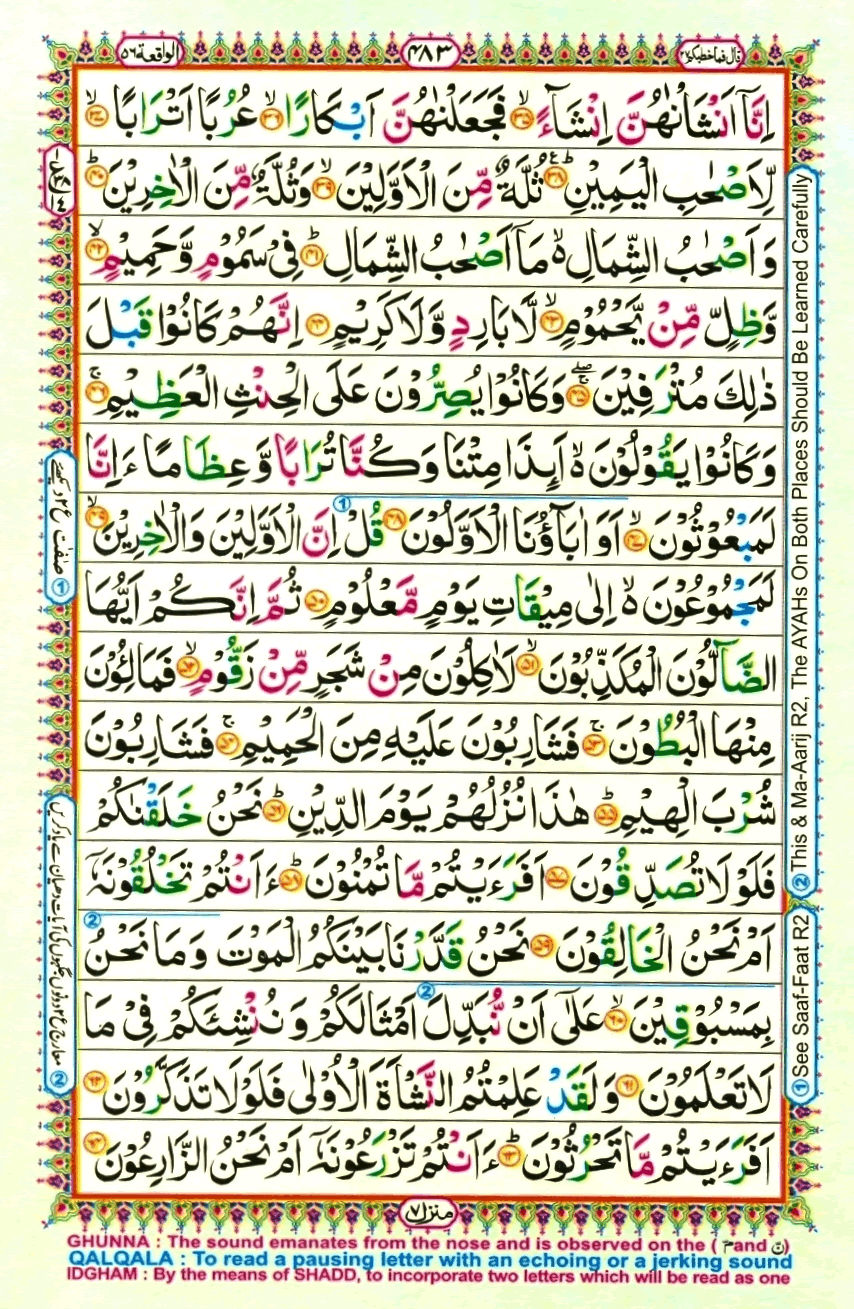 قال فما خطبكم ۲۷
۴۸۳
الواقعة ۵۶
اِنَّاۤ اَنْشَاْنٰهُنَّ اِنْشَآءً ۙ۳۵ فَجَعَلْنٰهُنَّ اَبْكَارًا ۙ۳۶ عُرُبًا اَتْرَابًا ۙ۳۷
لِّاَصْحٰبِ الْيَمِيْنِ ؕ۳۸ ثُلَّةٌ مِّنَ الْاَوَّلِيْنَ ۙ۳۹ وَثُلَّةٌ مِّنَ الْاٰخِرِيْنَ ؕ۴۰
وَاَصْحٰبُ الشِّمَالِ ۙ مَاۤ اَصْحٰبُ الشِّمَالِ ؕ۴۱ فِيْ سَمُوْمٍ وَّحَمِيْمٍ ۙ۴۲
وَّظِلٍّ مِّنْ يَّحْمُوْمٍ ۙ۴۳ لَّا بَارِدٍ وَّلَا كَرِيْمٍ ۴۴ اِنَّهُمْ كَانُوْا قَبْلَ
ذٰلِكَ مُتْرَفِيْنَ ۚۖ۴۵ وَكَانُوْا يُصِرُّوْنَ عَلَى الْحِنْثِ الْعَظِيْمِ ۚ۴۶
وَكَانُوْا يَقُوْلُوْنَ ۙ اَئِذَا مِتْنَا وَكُنَّا تُرَابًا وَّعِظَامًا ءَاِنَّا
لَمَبْعُوْثُوْنَ ۙ۴۷ اَوَ اٰبَآؤُنَا الْاَوَّلُوْنَ ۴۸ قُلْ اِنَّ الْاَوَّلِيْنَ وَالْاٰخِرِيْنَ ۙ۴۹
لَمَجْمُوْعُوْنَ ۙ اِلٰى مِيْقَاتِ يَوْمٍ مَّعْلُوْمٍ ۵۰ ثُمَّ اِنَّكُمْ اَيُّهَا
الضَّآلُّوْنَ الْمُكَذِّبُوْنَ ۙ۵۱ لَاٰكِلُوْنَ مِنْ شَجَرٍ مِّنْ زَقُّوْمٍ ۙ۵۲ فَمَالِـُٔوْنَ
مِنْهَا الْبُطُوْنَ ۚ۵۳ فَشَارِبُوْنَ عَلَيْهِ مِنَ الْحَمِيْمِ ۚ۵۴ فَشَارِبُوْنَ
شُرْبَ الْهِيْمِ ؕ۵۵ هٰذَا نُزُلُهُمْ يَوْمَ الدِّيْنِ ؕ۵۶ نَحْنُ خَلَقْنٰكُمْ
فَلَوْلَا تُصَدِّقُوْنَ ۵۷ اَفَرَءَيْتُمْ مَّا تُمْنُوْنَ ؕ۵۸ ءَاَنْتُمْ تَخْلُقُوْنَهٗۤ
اَمْ نَحْنُ الْخَالِقُوْنَ ۵۹ نَحْنُ قَدَّرْنَا بَيْنَكُمُ الْمَوْتَ وَمَا نَحْنُ
بِمَسْبُوْقِيْنَ ۙ۶۰ عَلٰۤى اَنْ نُّبَدِّلَ اَمْثَالَكُمْ وَنُنْشِئَكُمْ فِيْ مَا
لَا تَعْلَمُوْنَ ۶۱ وَلَقَدْ عَلِمْتُمُ النَّشْاَةَ الْاُوْلٰى فَلَوْلَا تَذَكَّرُوْنَ ۶۲
اَفَرَءَيْتُمْ مَّا تَحْرُثُوْنَ ؕ۶۳ ءَاَنْتُمْ تَزْرَعُوْنَهٗۤ اَمْ نَحْنُ الزَّارِعُوْنَ ۶۴
① See Saaf-Faat R2
② This & Ma-Aarij R2, The AYAHs On Both Places Should Be Learned Carefully
① صٰفّٰت ع۲ دیکھئے
② معارج ع۲ دونوں جگہوں کی آیات دھیان سے یاد کریں
منزل ۷
GHUNNA : The sound emanates from the nose and is observed on the ( م and ن)
QALQALA : To read a pausing letter with an echoing or a jerking sound
IDGHAM : By the means of SHADD, to incorporate two letters which will be read as one